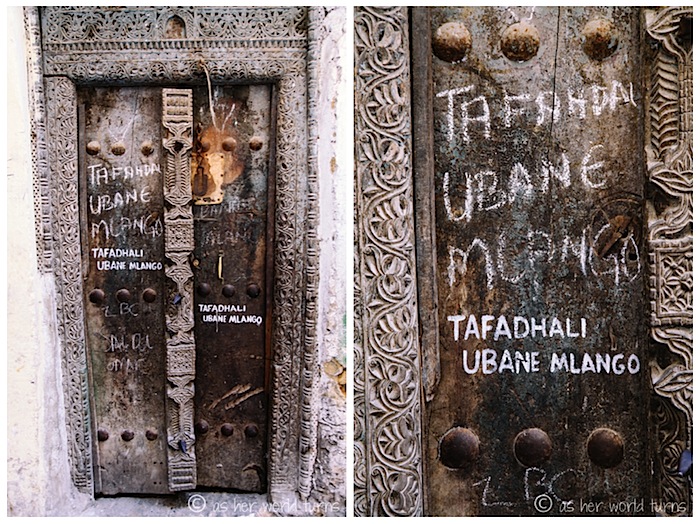 TAFAHDAL
UBANE
MLANGO
TAFADHALI
UBANE MLANGO
TAFADHALI
UBANE MLANGO
ZBC
OMAR
© as her world turns
TAFAHDAL
UBANE
MLANGO
TAFADHALI
UBANE MLANGO
ZBC
© as her world turns